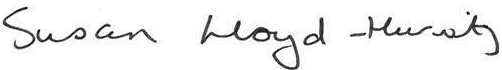 Susan Lloyd-Hurwitz